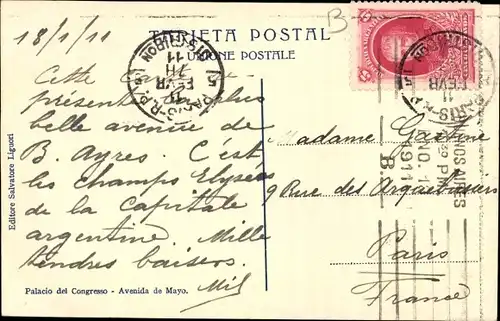 18/1/11
TARJETA POSTAL
UNIONE POSTALE
B
Cette
présente plus
belle avenue de
B. Ayres. C'est
les Champs Elysées
de la capitale
argentine. Mille
tendres baisers.
Mil
Madame Gastine
9 Rue des Arquebusiers
Paris
France
5
DISTRIBUTION
PARIS-R.P.
7H
10
FEVR
11
BUENOS AIRES
1911
Bs
Editore Salvatore Liguori
Palacio del Congresso - Avenida de Mayo.